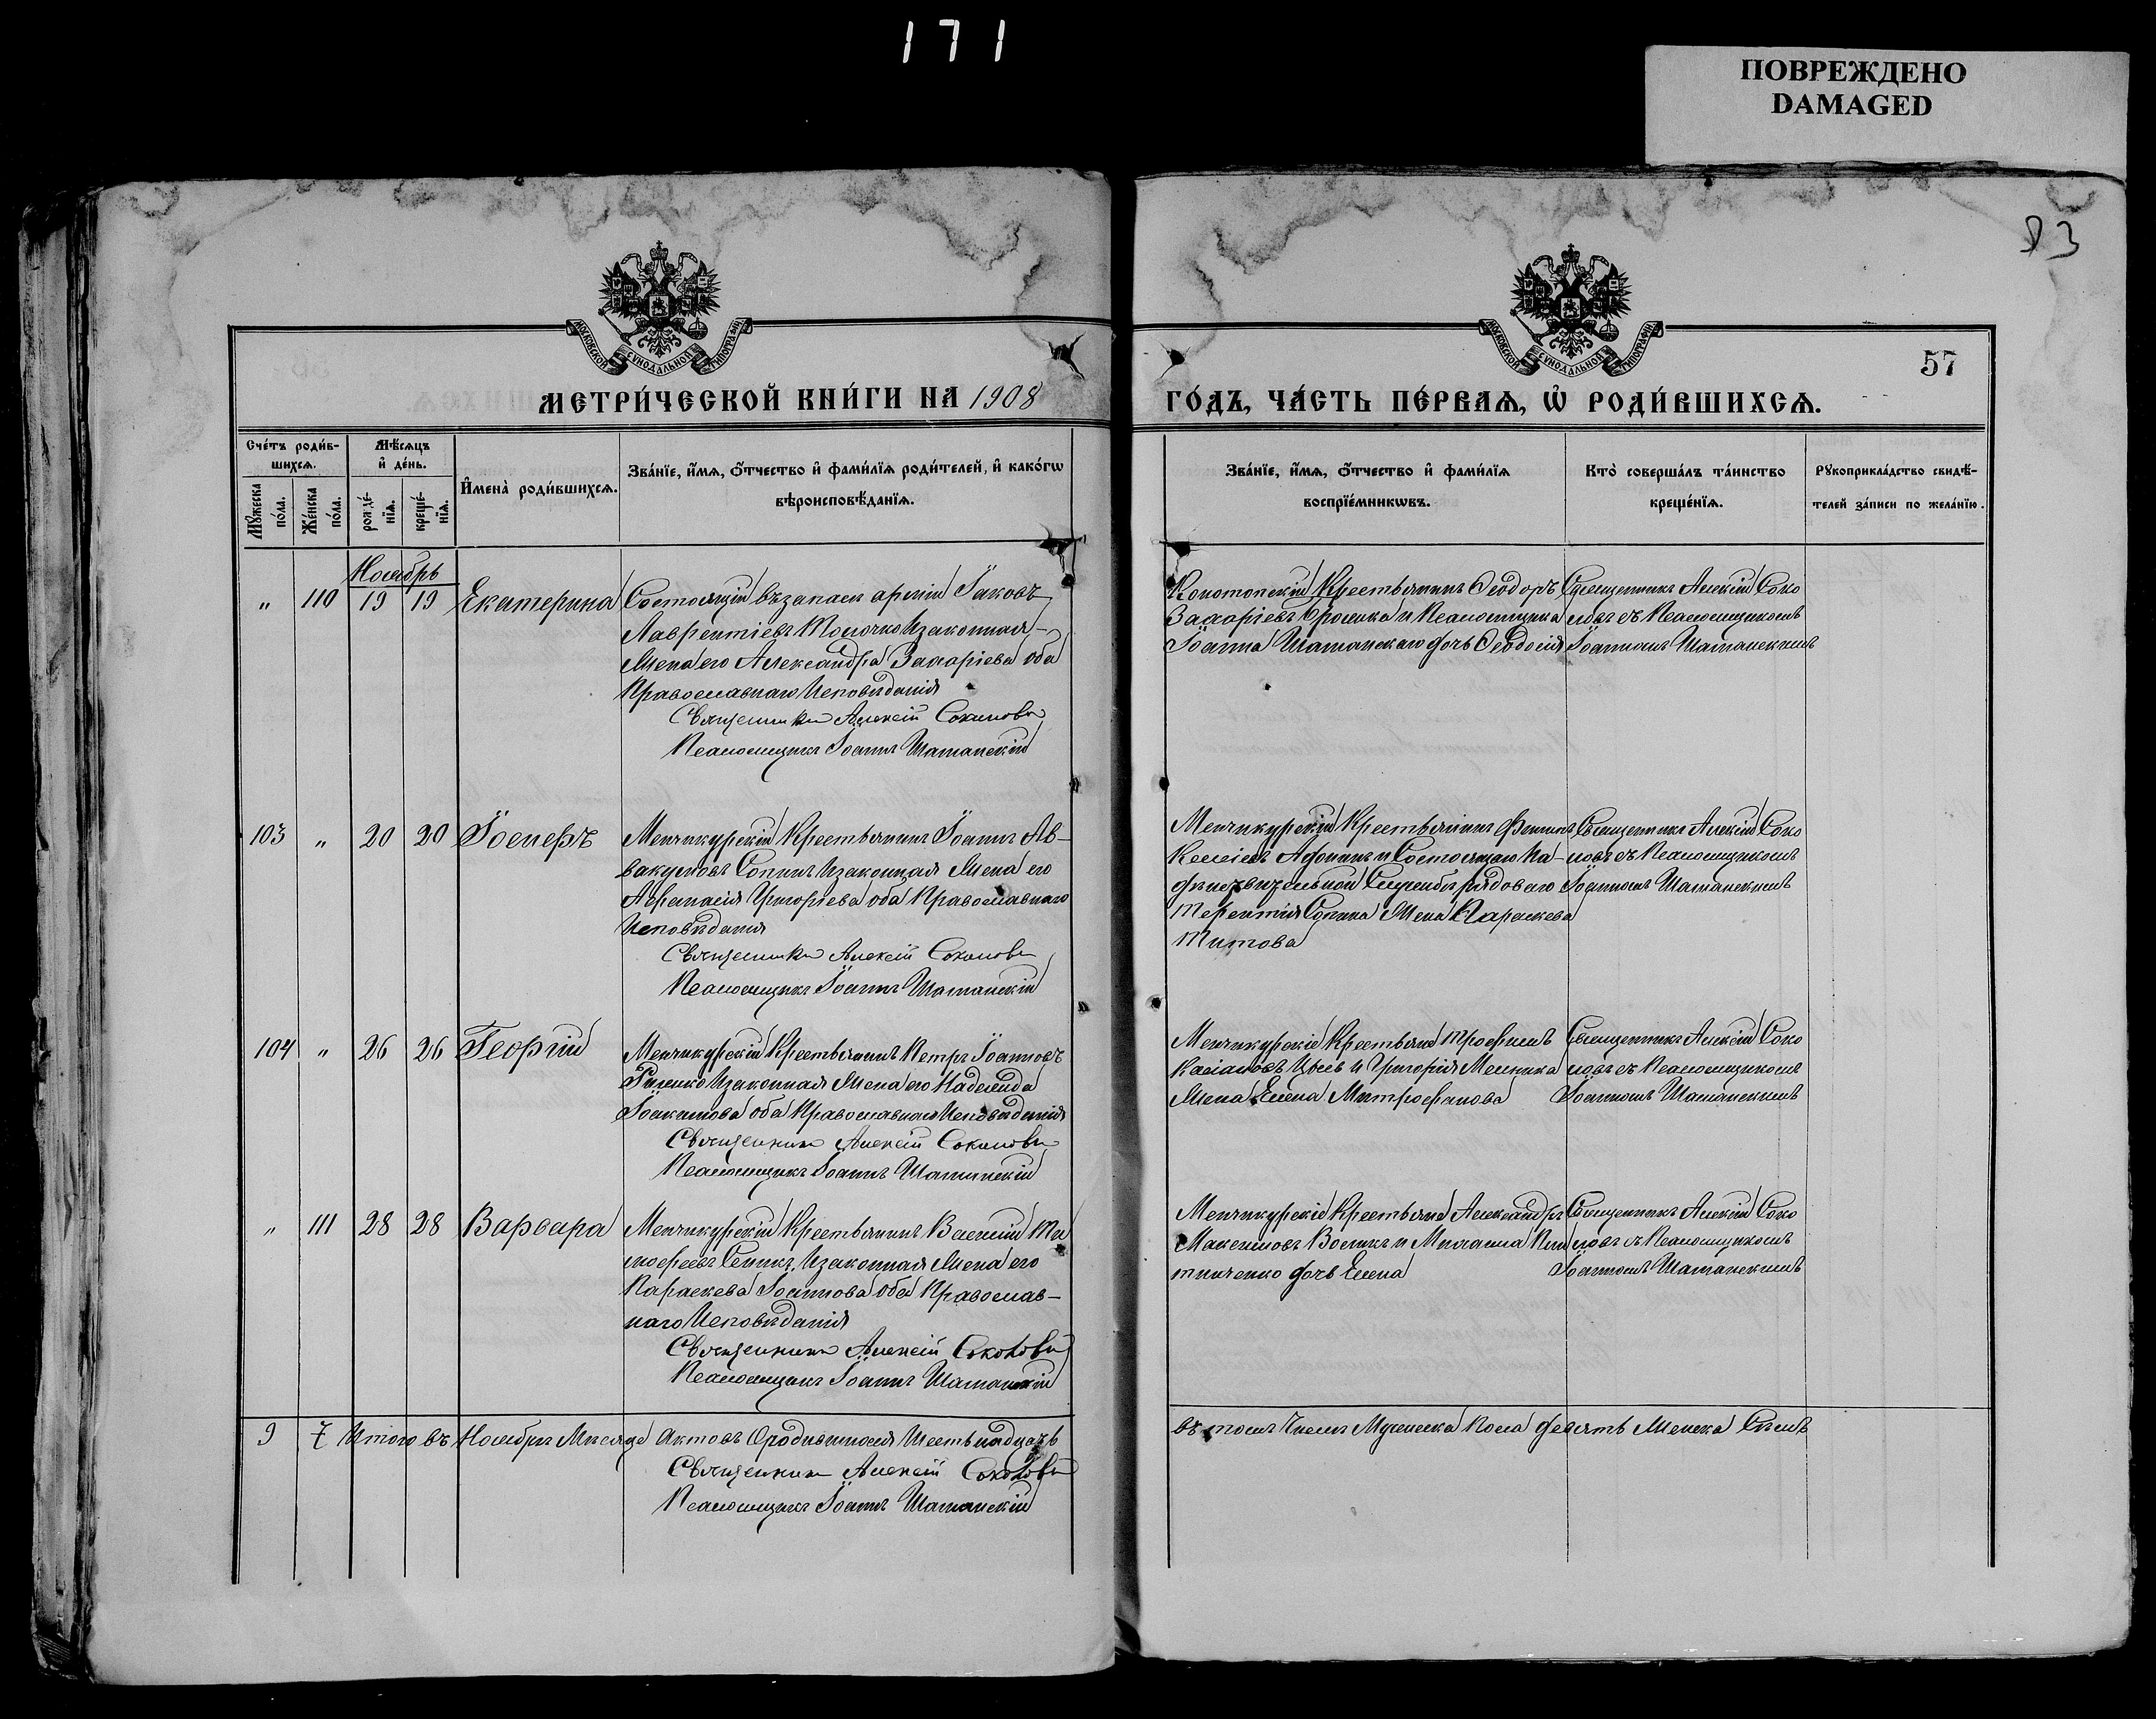 171
ПОВРЕЖДЕНО
DAMAGED
83
57
МОСКОВСКОЙ СУНОДАЛЬНОЙ ТИПОГРАФІИ
МОСКОВСКОЙ СУНОДАЛЬНОЙ ТИПОГРАФІИ
МЕТРИ́ЧЕСКОЙ КНИ́ГИ НА 1908
ГО́ДЪ, ЧА́СТЬ ПЕ́РВАѦ, Ѡ҆ РОДИ́ВШИХСѦ.
Сче́тъ роди́в-
шихсѧ.
Мѣ́сѧцъ
и҆ де́нь.
Мꙋ́жеска по́ла.
Же́нска по́ла.
рожде́-
нїѧ.
креще́-
нїѧ.
И҆мена̀ роди́вшихсѧ.
Зва́нїе, и҆́мѧ, ѻ҆́тчество и҆ фами́лїѧ роди́телей, и҆ како́гѡ
вѣроисповѣ́данїѧ.
Зва́нїе, и҆́мѧ, ѻ҆́тчество и҆ фами́лїѧ
воспрїе́мникѡвъ.
Кто̀ соверша́лъ та́инство
креще́нїѧ.
Рꙋкоприкла́дство свидѣ́-
телей за́писи по жела́нїю.
Ноябрь
" 110 19 19 Екатерина
Состоящій въ запасѣ арміи Іаковъ
Лаврентіевъ Молочко и законная
Жена его Александра Захаріева оба
Православнаго Исповѣданія
Священникъ Алексій Соколовъ
Псаломщикъ Іоаннъ Шатанскій
Конотопскій Крестьянинъ Ѳеодоръ
Захаріевъ и Псаломщика
Іоанна Шатанскаго дочь Ѳеодосія
Священникъ Алексій Соко
ловъ съ Псаломщикомъ
Іоанномъ Шатанскимъ
103 " 20 20 Іосифъ
Менчикурскій Крестьянинъ Іоаннъ Ав-
вакумовъ Сопинъ и законная Жена его
Афанасія Григоріева оба Православнаго
Исповѣданія
Священникъ Алексій Соколовъ
Псаломщикъ Іоаннъ Шатанскій
Менчикурскій Крестьянинъ Филипъ
Афонинъ и Состоящаго На
дѣйствительной Службѣ рядоваго
Терентія Сопина Жена Параскева
Титова
Священникъ Алексій Соко
ловъ съ Псаломщикомъ
Іоанномъ Шатанскимъ
104 " 26 26 Георгій
Менчикурскій Крестьянинъ Петръ Іоанновъ
и законная Жена его Надежда
Іоакимова оба Православнаго Исповѣданія
Священникъ Алексій Соколовъ
Псаломщикъ Іоаннъ Шатанскій
Менчикурскіе Крестьяне Трофимъ
Касіановъ и Григорія Мельника
Жена Елена Митрофанова
Священникъ Алексій Соко
ловъ съ Псаломщикомъ
Іоанномъ Шатанскимъ
" 111 28 28 Варвара
Менчикурскій Крестьянинъ Василій Ти
мофеевъ и законная Жена его
Параскева Іоаннова оба Православ-
наго Исповѣданія
Священникъ Алексій Соколовъ
Псаломщикъ Іоаннъ Шатанскій
Менчикурскіе Крестьяне Александръ
Максимовъ Воликъ и Михаила
дочь Елена
Священникъ Алексій Соко
ловъ съ Псаломщикомъ
Іоанномъ Шатанскимъ
9 7 Итого въ Ноябрѣ Мѣсяцѣ Актовъ О родившихся Шестьнадцать
Священникъ Алексій Соколовъ
Псаломщикъ Іоаннъ Шатанскій
въ томъ Числѣ Мужеска Пола девять Женска Семь